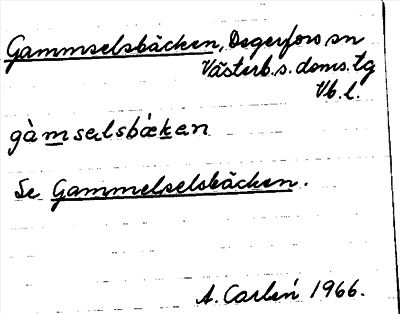 Gammselsbäcken, Degerfors sn
Västerb. s. doms. tg
Vb. l.
gàmselsbæken
Se Gammelselsbäcken.
A. Carlén 1966.